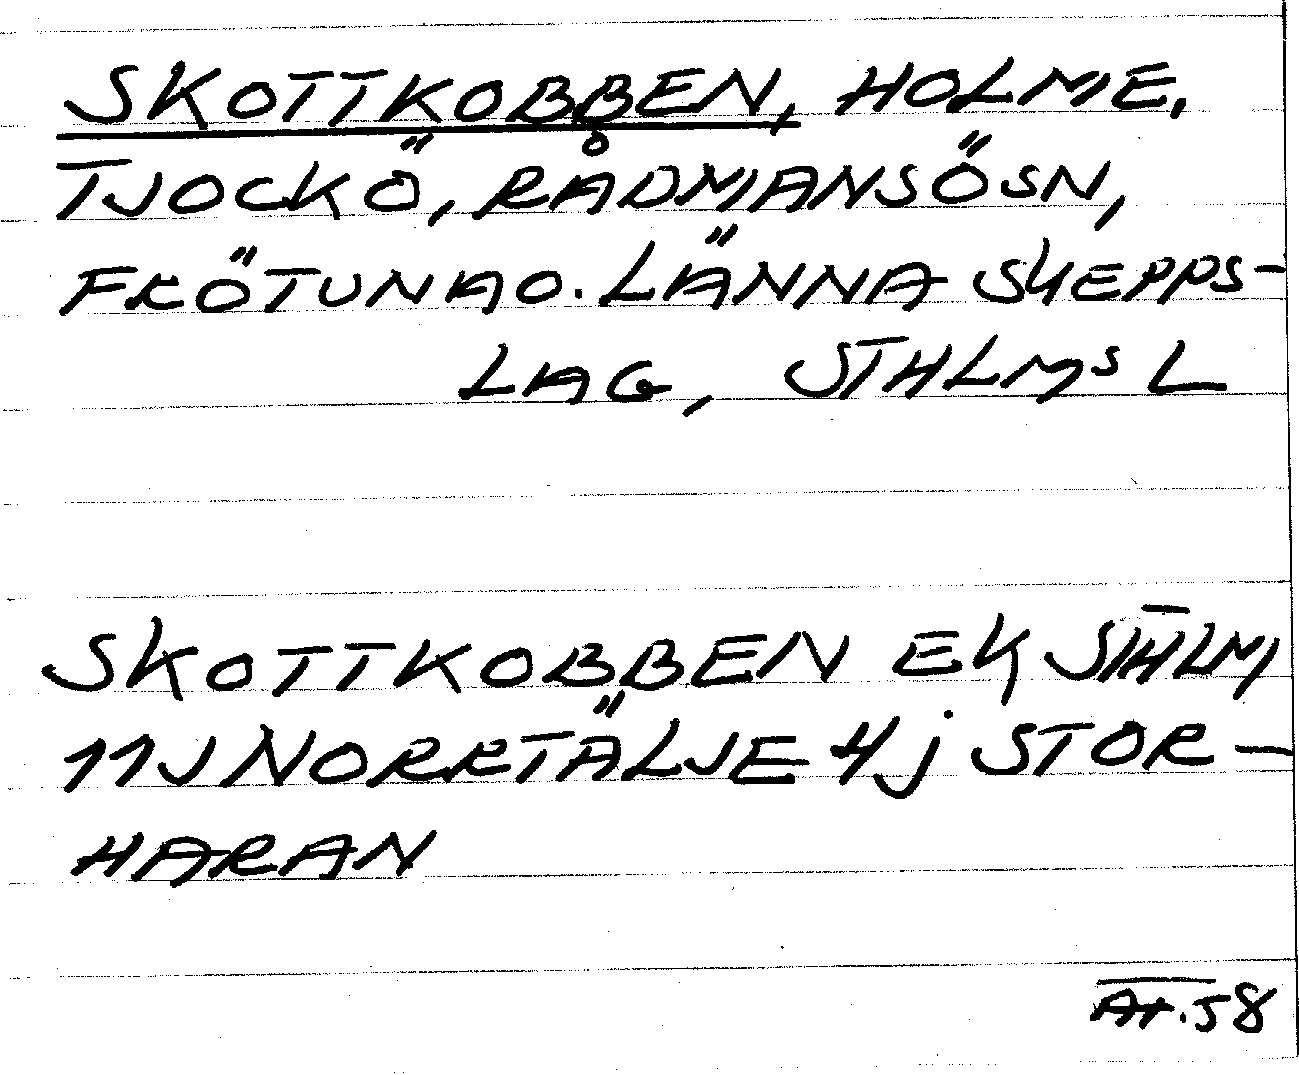 SKOTTKOBBEN, HOLME,
TJOCKÖ, RÅDMANSÖ SN,
FRÖTUNA O. LÄNNA SKEPPS-
LAG, STHLMS L
SKOTTKOBBEN EK STHLM
11J NORRTÄLJE 4j STOR-
HARAN
58